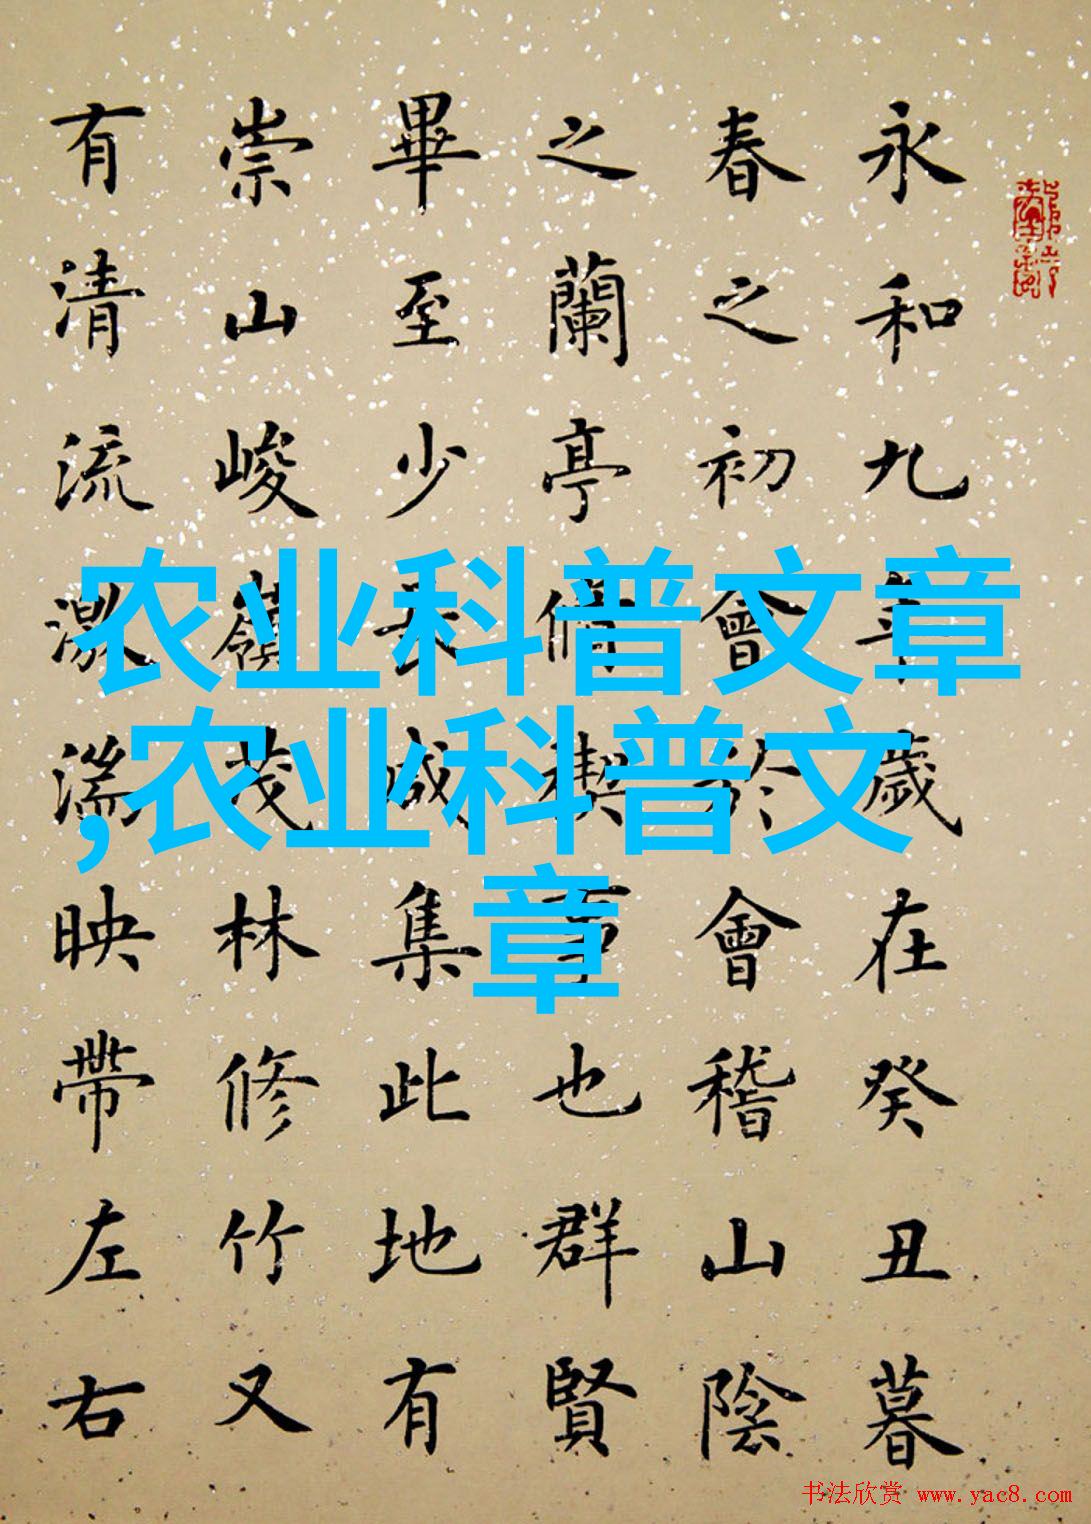 永和九年歲在癸丑暮
春之初會於會稽山陰
之蘭亭脩禊事也群賢
畢至少長咸集此地有
崇山峻嶺茂林修竹又
有清流激湍映帶左右
农业科普文章
,农业科普文
章
书法欣赏 www.yac8.com